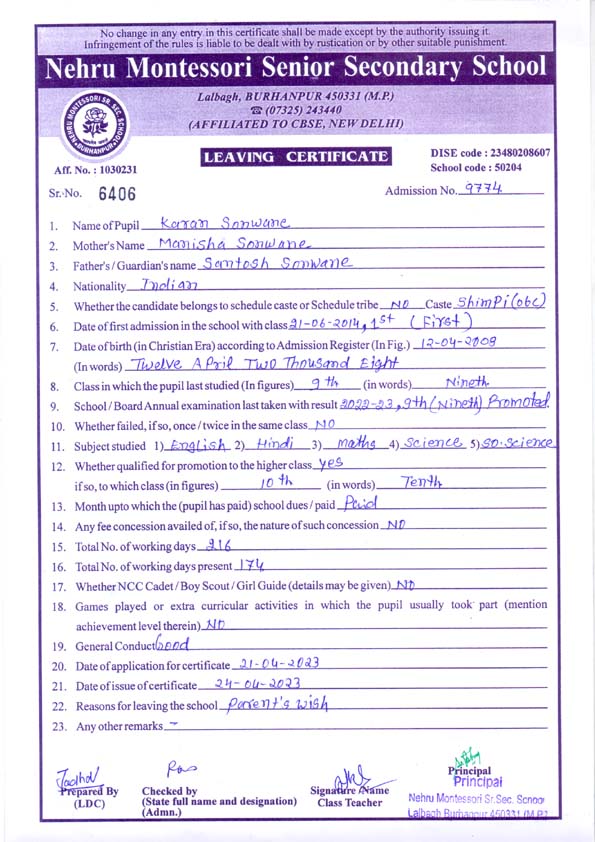 No change in any entry in this certificate shall be made except by the authority issuing it.
Infringement of the rules is liable to be dealt with by rustication or by other suitable punishment.
Nehru Montessori Senior Secondary School
Lalbagh, BURHANPUR 450331 (M.P.)
☎ (07325) 243440
(AFFILIATED TO CBSE, NEW DELHI)
NEHRU MONTESSORI SR. SEC. SCHOOL
BURHANPUR
LEAVING CERTIFICATE
DISE code : 23480208607
School code : 50204
Aff. No. : 1030231
Sr. No. 6406
Admission No. 9774
1. Name of Pupil Karan Sonwane
2. Mother's Name Manisha Sonwane
3. Father's / Guardian's name Santosh Sonwane
4. Nationality Indian
5. Whether the candidate belongs to schedule caste or Schedule tribe NO Caste Shimpi (obc)
6. Date of first admission in the school with class 21-06-2014, 1st (First)
7. Date of birth (in Christian Era) according to Admission Register (In Fig.) 12-04-2008
(In words) Twelve April Two Thousand Eight
8. Class in which the pupil last studied (In figures) 9th (in words) Nineth
9. School / Board Annual examination last taken with result 2022-23, 9th (Nineth) Promoted
10. Whether failed, if so, once / twice in the same class NO
11. Subject studied 1) English 2) Hindi 3) Maths 4) Science 5) SO.Science
12. Whether qualified for promotion to the higher class yes
if so, to which class (in figures) 10th (in words) Tenth
13. Month upto which the (pupil has paid) school dues / paid Paid
14. Any fee concession availed of, if so, the nature of such concession NO
15. Total No. of working days 216
16. Total No. of working days present 174
17. Whether NCC Cadet / Boy Scout / Girl Guide (details may be given) NO
18. Games played or extra curricular activities in which the pupil usually took part (mention
achievement level therein) NO
19. General Conduct Good
20. Date of application for certificate 21-04-2023
21. Date of issue of certificate 24-04-2023
22. Reasons for leaving the school Parent's wish
23. Any other remarks -
Prepared By
(LDC)
Checked by
(State full name and designation)
(Admn.)
Signature / Name
Class Teacher
Principal
Principal
Nehru Montessori Sr.Sec. School
Lalbagh Burhanpur 450331 (M.P.)